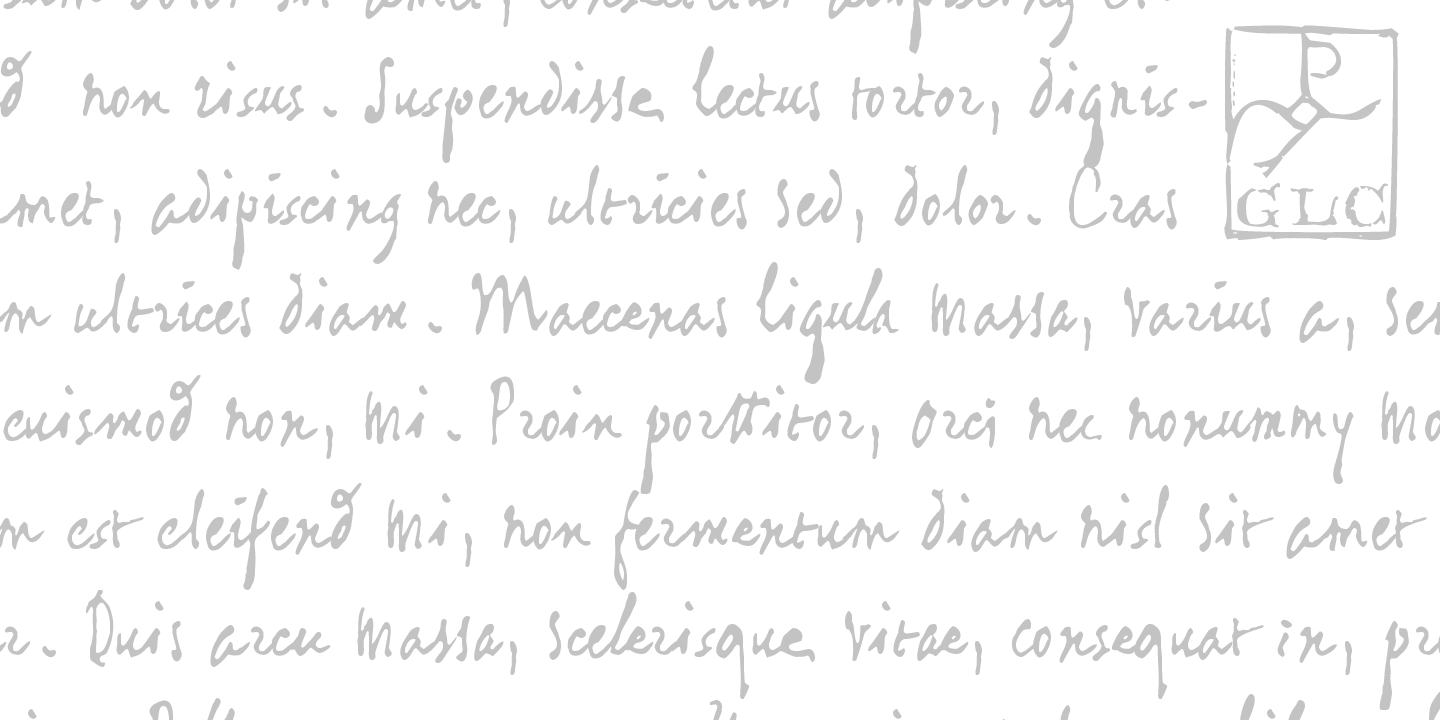 dolor sit amet, consectetur adipiscing
non risus. Suspendisse lectus tortor, dignis-
P
GLC
amet, adipiscing nec, ultricies sed, dolor. Cras
m ultrices diam. Maecenas ligula massa, varius a, sem
euismod non, mi. Proin porttitor, orci nec nonummy mo
m est eleifend mi, non fermentum diam nisl sit amet
r. Duis arcu massa, scelerisque vitae, consequat in, pr